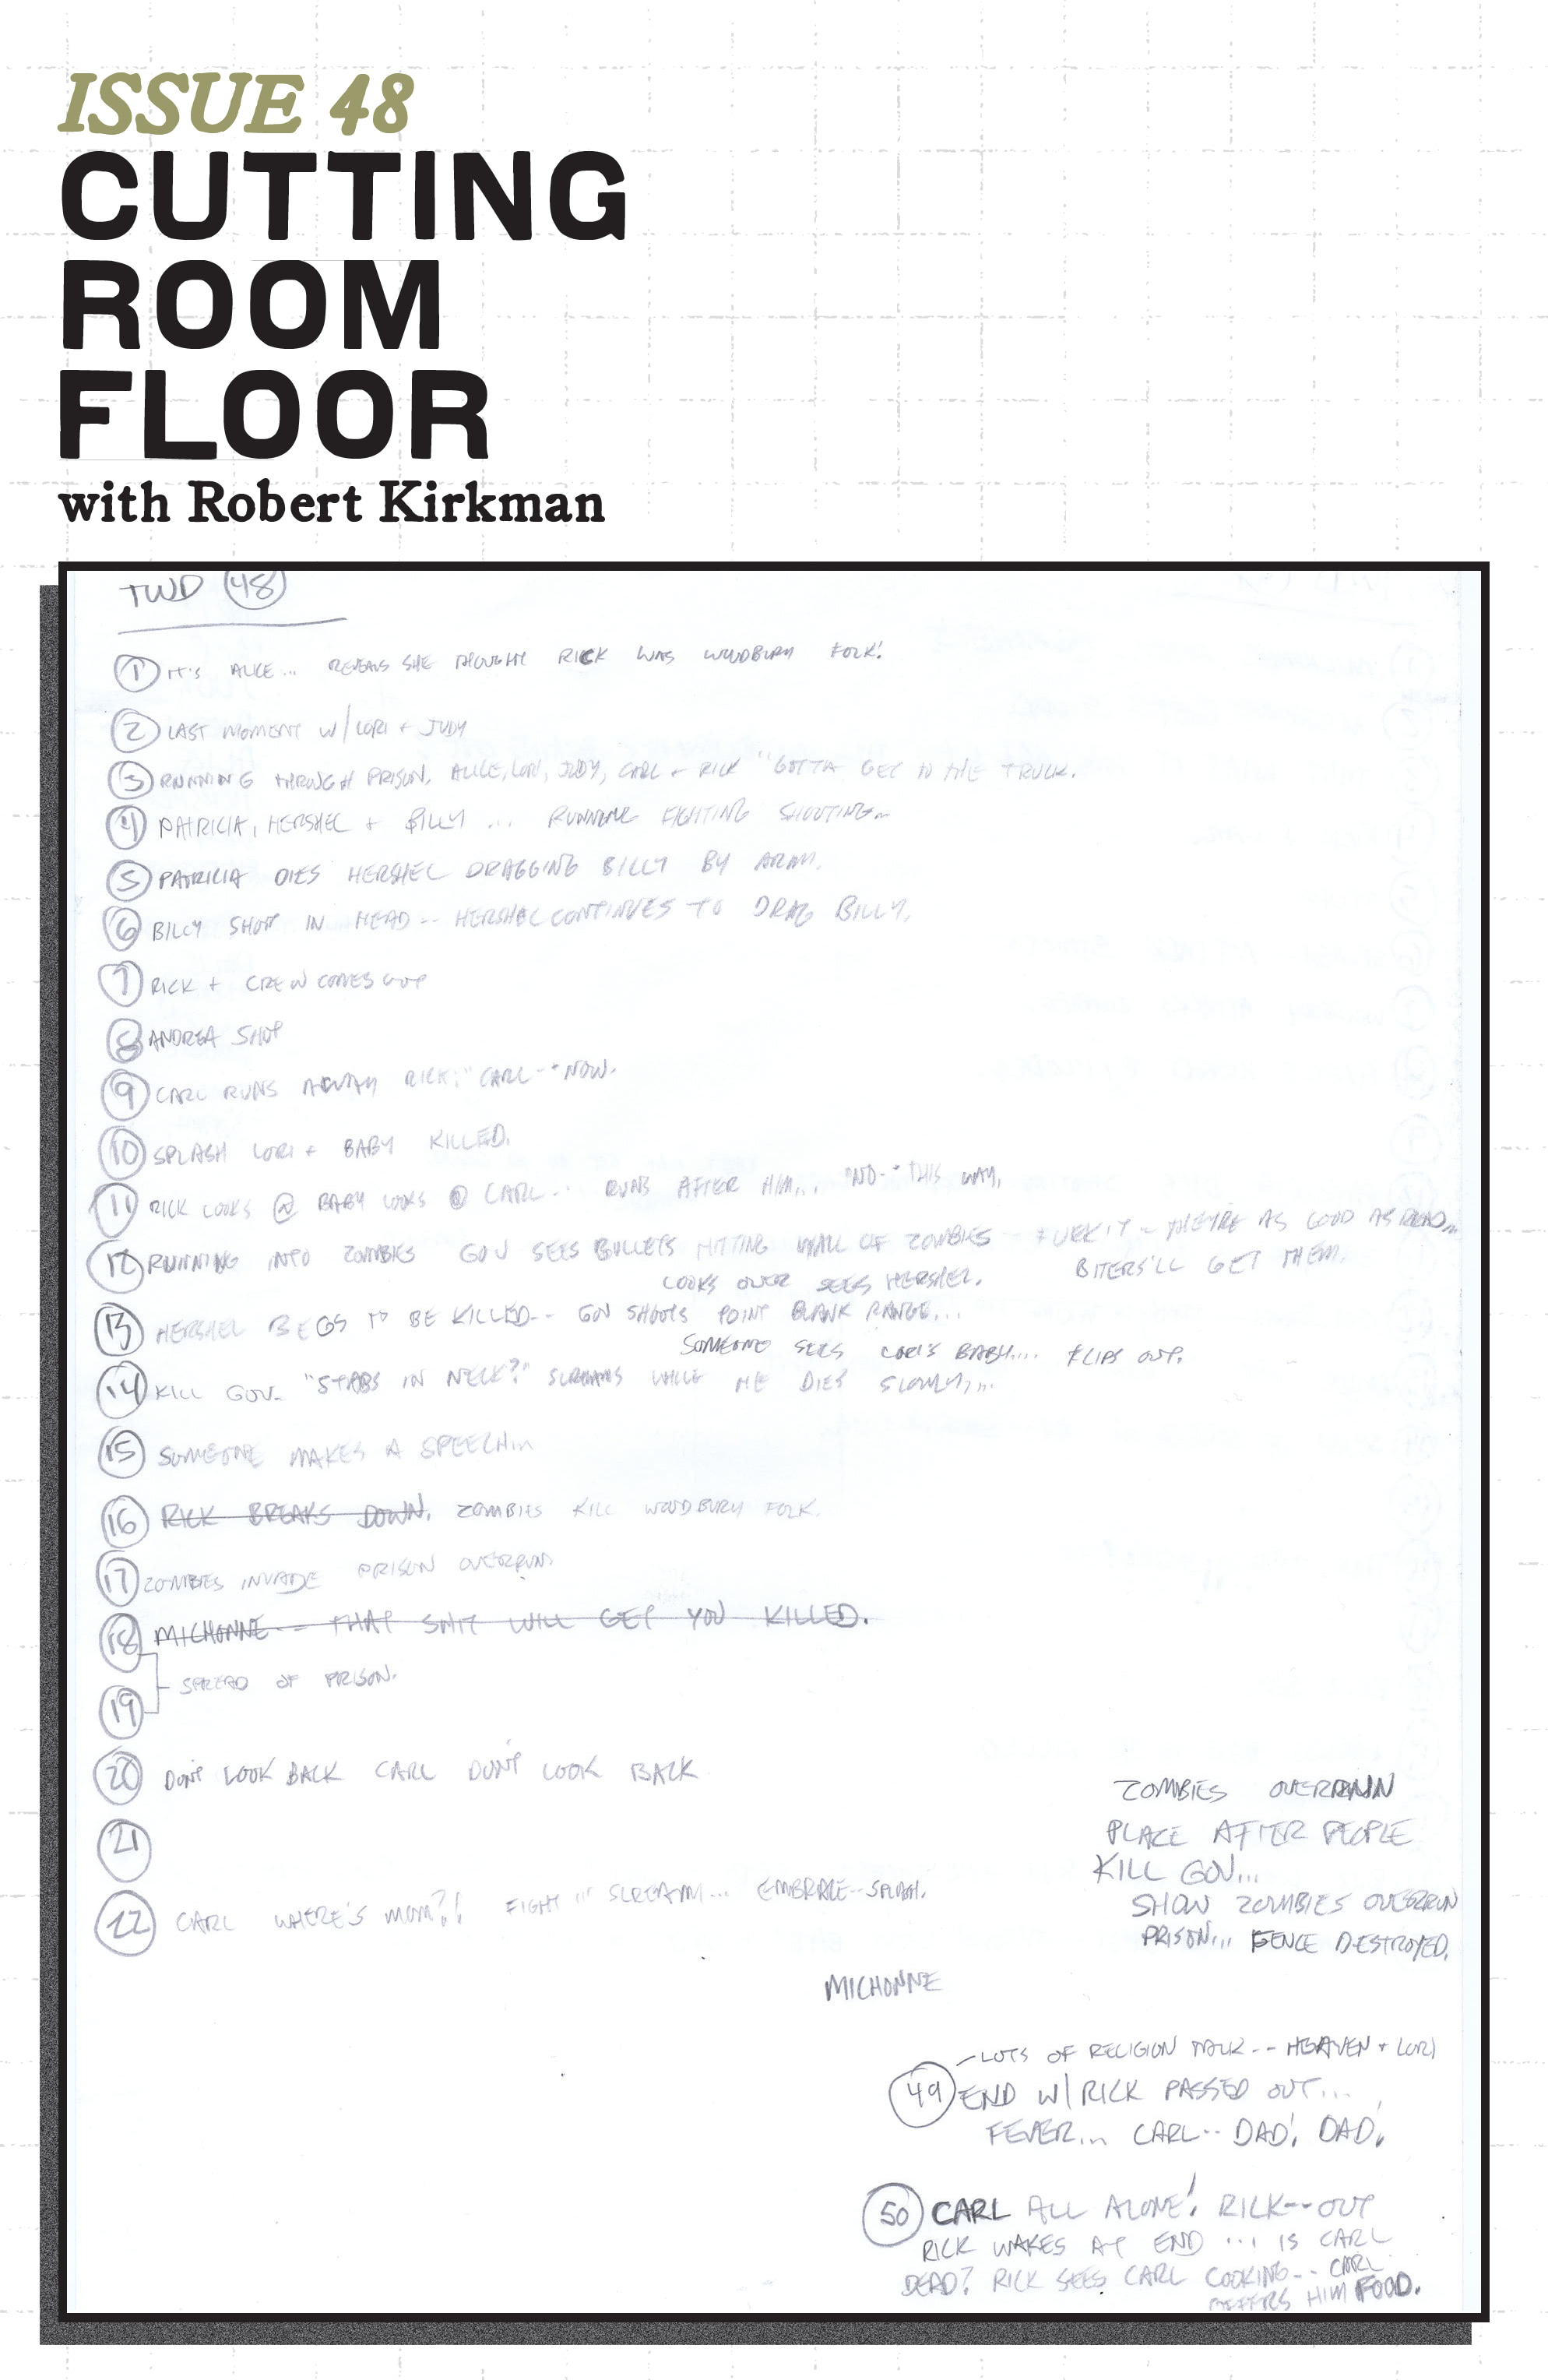 ISSUE 48
CUTTING
ROOM
FLOOR
with Robert Kirkman
TWD 48
1 IT'S ALICE... REVEALS SHE THOUGHT RICK WAS WOODBURY FOLK!
2 LAST MOMENT W/ LORI + JUDY
3 RUNNING THROUGH PRISON, ALICE, LORI, JUDY, CARL + RICK "GOTTA GET TO THE TRUCK.
4 PATRICIA, HERSHEL + BILLY ... RUNNING FIGHTING SHOOTING...
5 PATRICIA DIES HERSHEL DRAGGING BILLY BY ARM.
6 BILLY SHOT IN HEAD -- HERSHEL CONTINUES TO DRAG BILLY.
7 RICK + CREW COMES OUT
8 ANDREA SHOT
9 CARL RUNS AWAY RICK: "CARL -- NOW.
10 SPLASH LORI + BABY KILLED.
11 RICK LOOKS @ BABY LOOKS @ CARL... RUNS AFTER HIM... "NO -- THIS WAY.
12 RUNNING INTO ZOMBIES GOV SEES BULLETS HITTING WALL OF ZOMBIES -- FUKK IT -- THEY'RE AS GOOD AS DEAD...
LOOKS OVER SEES HERSHEL. BITERS'LL GET THEM.
13 HERSHEL BEGS TO BE KILLED -- GOV SHOOTS POINT BLANK RANGE...
SOMEONE SEES LORI'S BABY.... FLIPS OUT.
14 KILL GOV. "STABS IN NECK?" SCREAMS WHILE HE DIES SLOWLY...
15 SOMEONE MAKES A SPEECH...
16 RICK BREAKS DOWN. ZOMBIES KILL WOODBURY FOLK.
17 ZOMBIES INVADE PRISON OVERRUN
18 MICHONNE -- THAT SHIT WILL GET YOU KILLED.
SPREAD OF PRISON.
19
20 DON'T LOOK BACK CARL DON'T LOOK BACK
21
22 CARL WHERE'S MOM?! FIGHT ... SCREAM... EMBRACE -- SPLASH.
ZOMBIES OVERRUN
PLACE AFTER PEOPLE
KILL GOV...
SHOW ZOMBIES OVERRUN
PRISON... FENCE DESTROYED.
MICHONNE
LOTS OF RELIGION TALK -- HEAVEN + LORI
49 END W/ RICK PASSED OUT...
FEVER... CARL -- DAD! DAD!
50 CARL ALL ALONE! RICK -- OUT
RICK WAKES AT END ... IS CARL
DEAD? RICK SEES CARL COOKING -- CARL
OFFERS HIM FOOD.